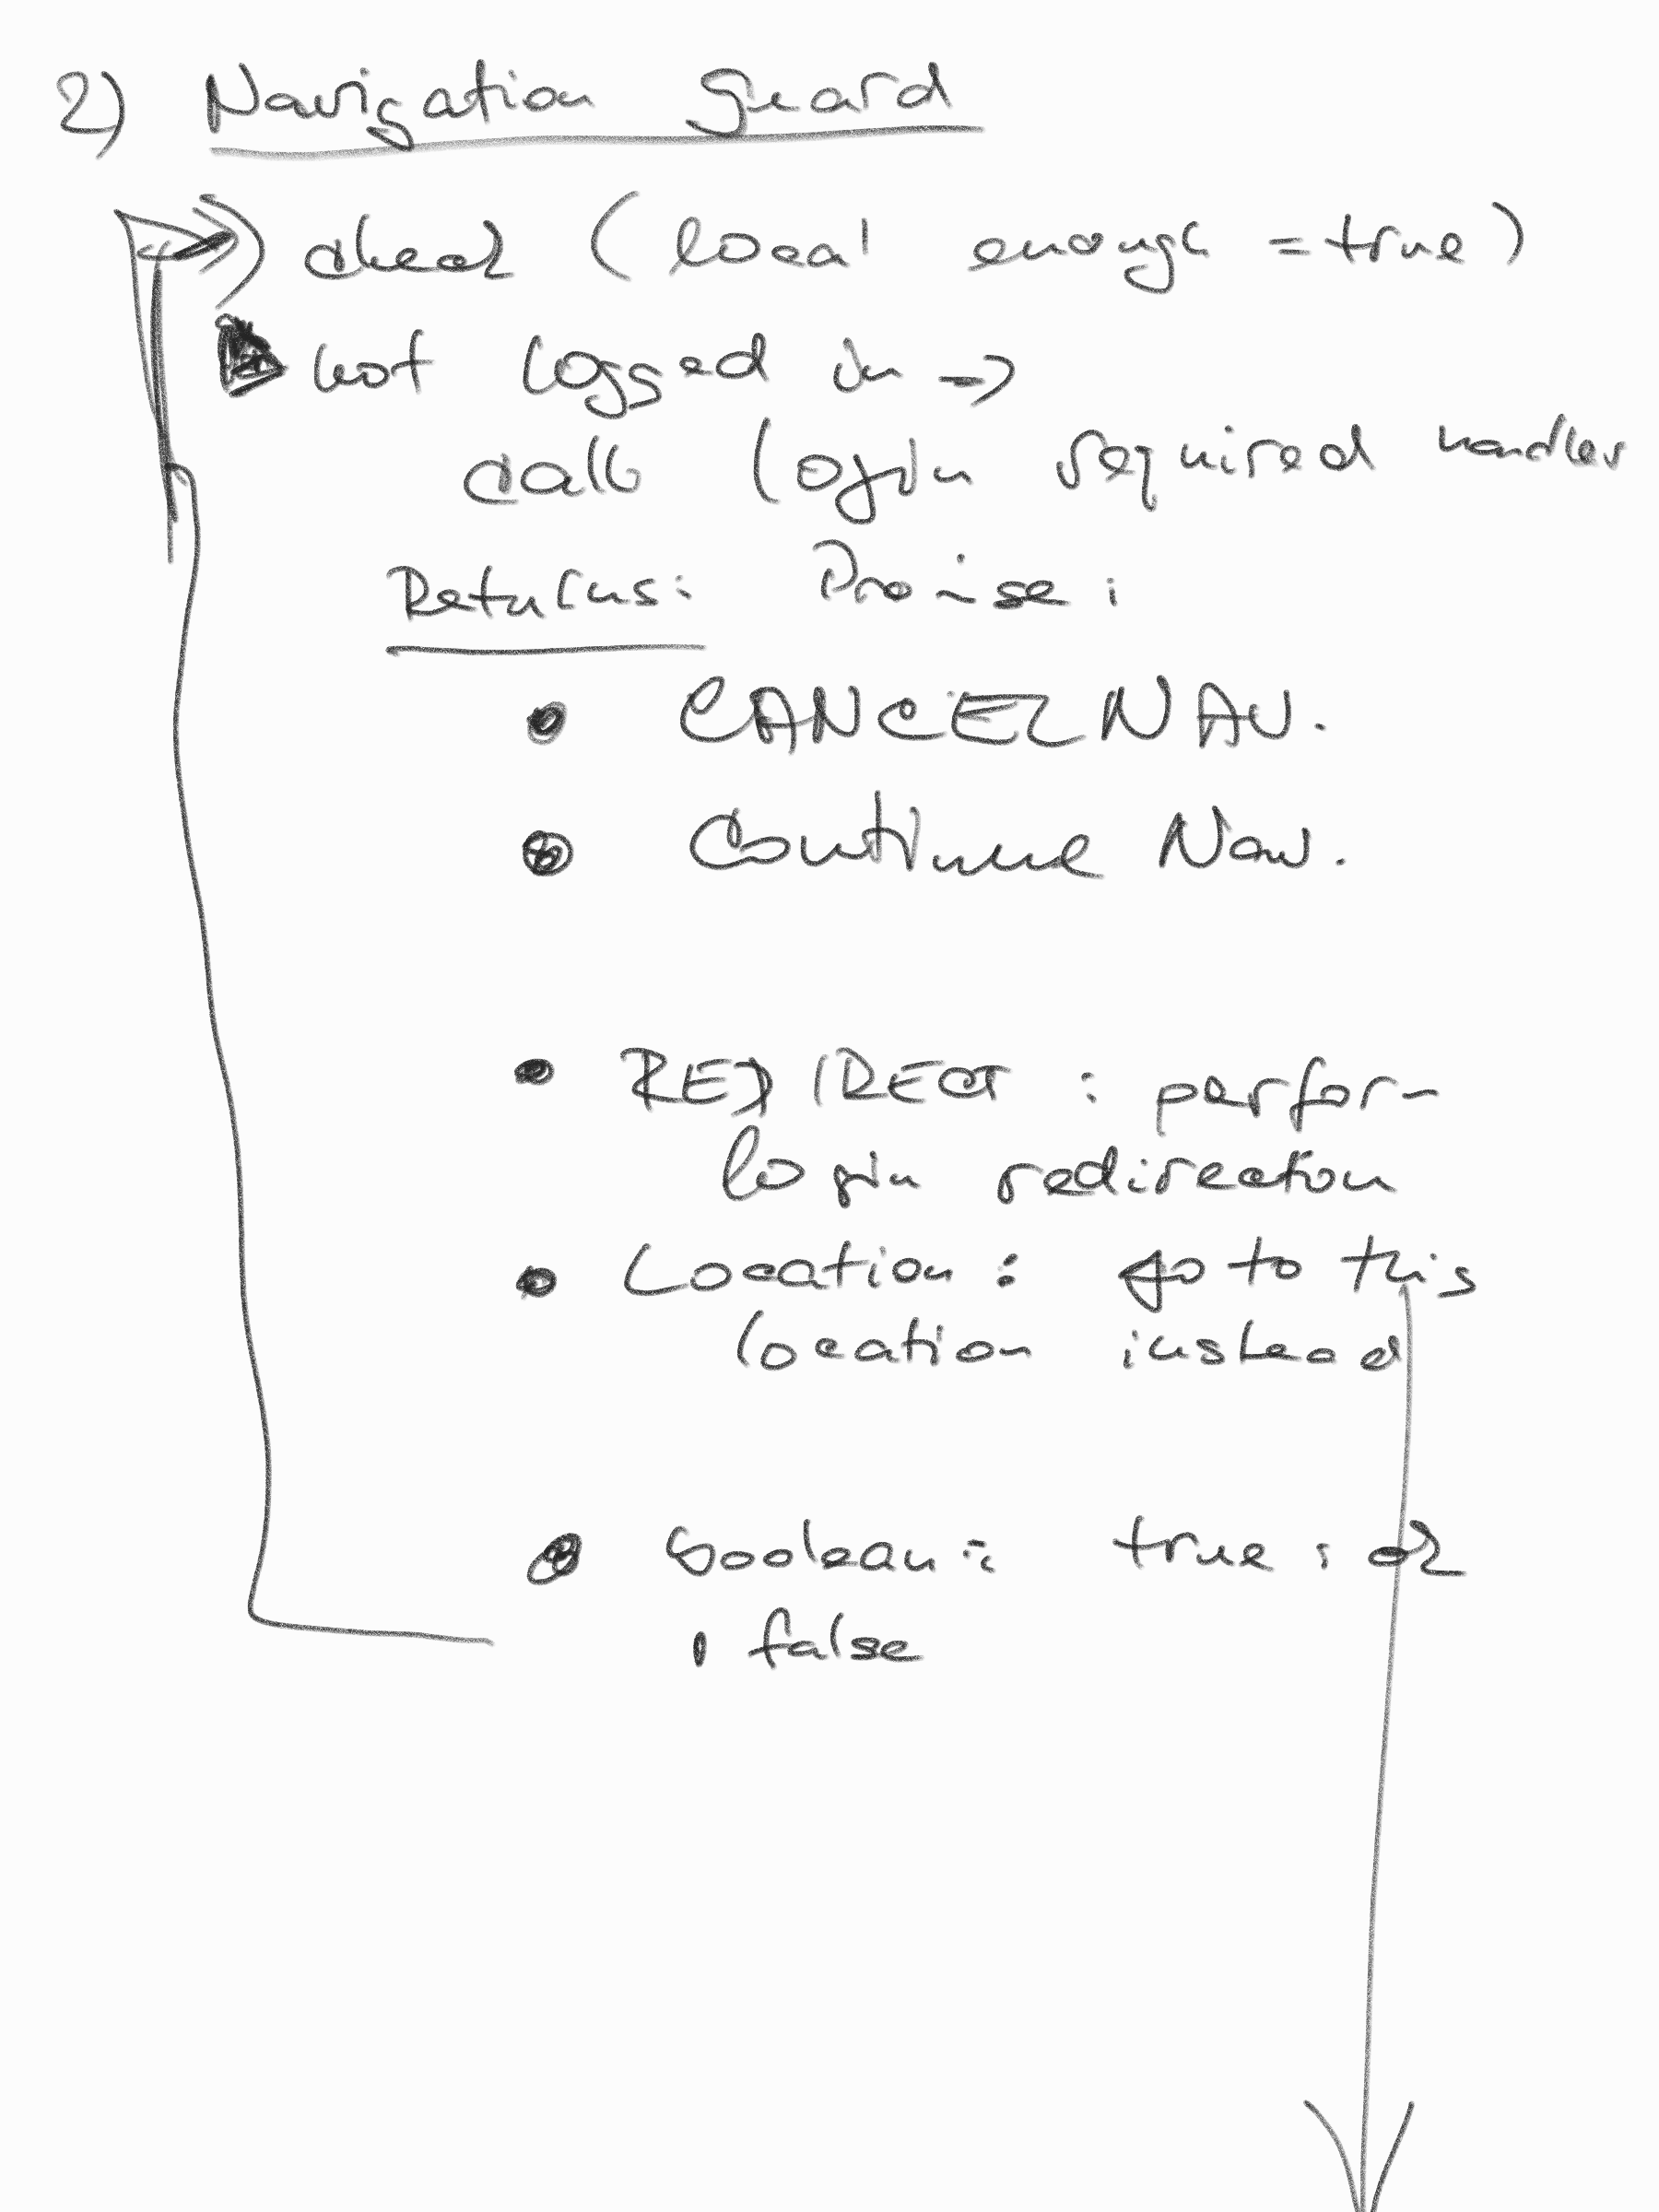 2) Navigation guard
check (local enough = true)
not logged in →
call login required handler
Returns: Promise:
• CANCEL NAV.
• Continue Nav.
• REDIRECT : perform
login redirection
• Location : go to this
location instead
• boolean : true : ok
• false